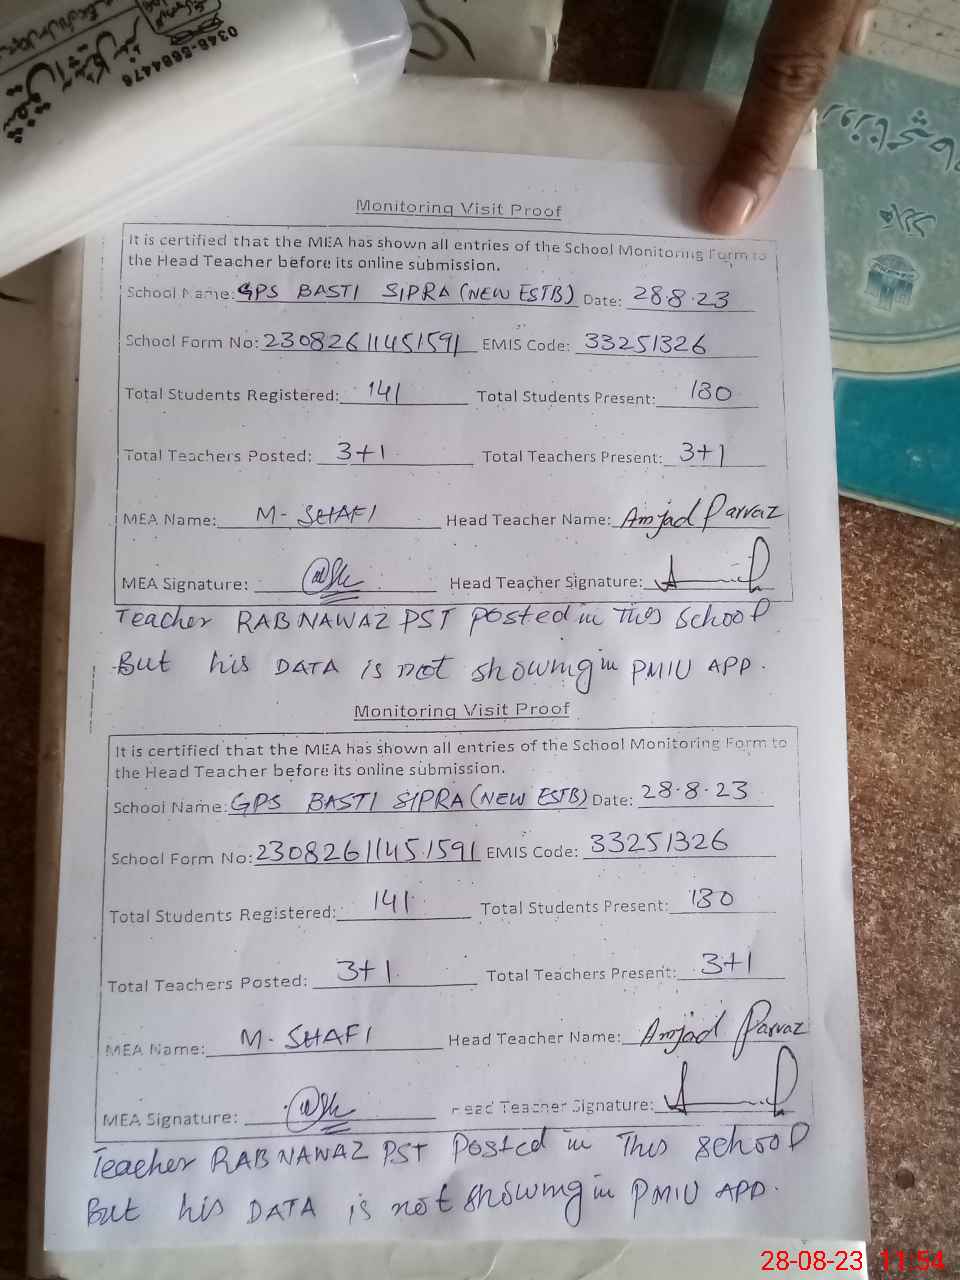 0346-5684476
Monitoring Visit Proof
It is certified that the MEA has shown all entries of the School Monitoring Form to
the Head Teacher before its online submission.
School Name: GPS BASTI SIPRA (NEW ESTB) Date: 28.8.23
School Form No: 23082611451591 EMIS Code: 33251326
Total Students Registered: 141 Total Students Present: 130
Total Teachers Posted: 3+1 Total Teachers Present: 3+1
MEA Name: M- SHAFI Head Teacher Name: Amjad Parvaz
MEA Signature: Head Teacher Signature:
Teacher RAB NAWAZ PST posted in This School
But his DATA is not showing in PMIU APP.
Monitoring Visit Proof
It is certified that the MEA has shown all entries of the School Monitoring Form to
the Head Teacher before its online submission.
School Name: GPS BASTI SIPRA (NEW ESTB) Date: 28.8.23
School Form No: 23082611451591 EMIS Code: 33251326
Total Students Registered: 141 Total Students Present: 130
Total Teachers Posted: 3+1 Total Teachers Present: 3+1
MEA Name: M. SHAFI Head Teacher Name: Amjad Parvaz
MEA Signature: Head Teacher Signature:
Teacher RAB NAWAZ PST Posted in This school
But his DATA is not showing in PMIU APP.
28-08-23 11:54